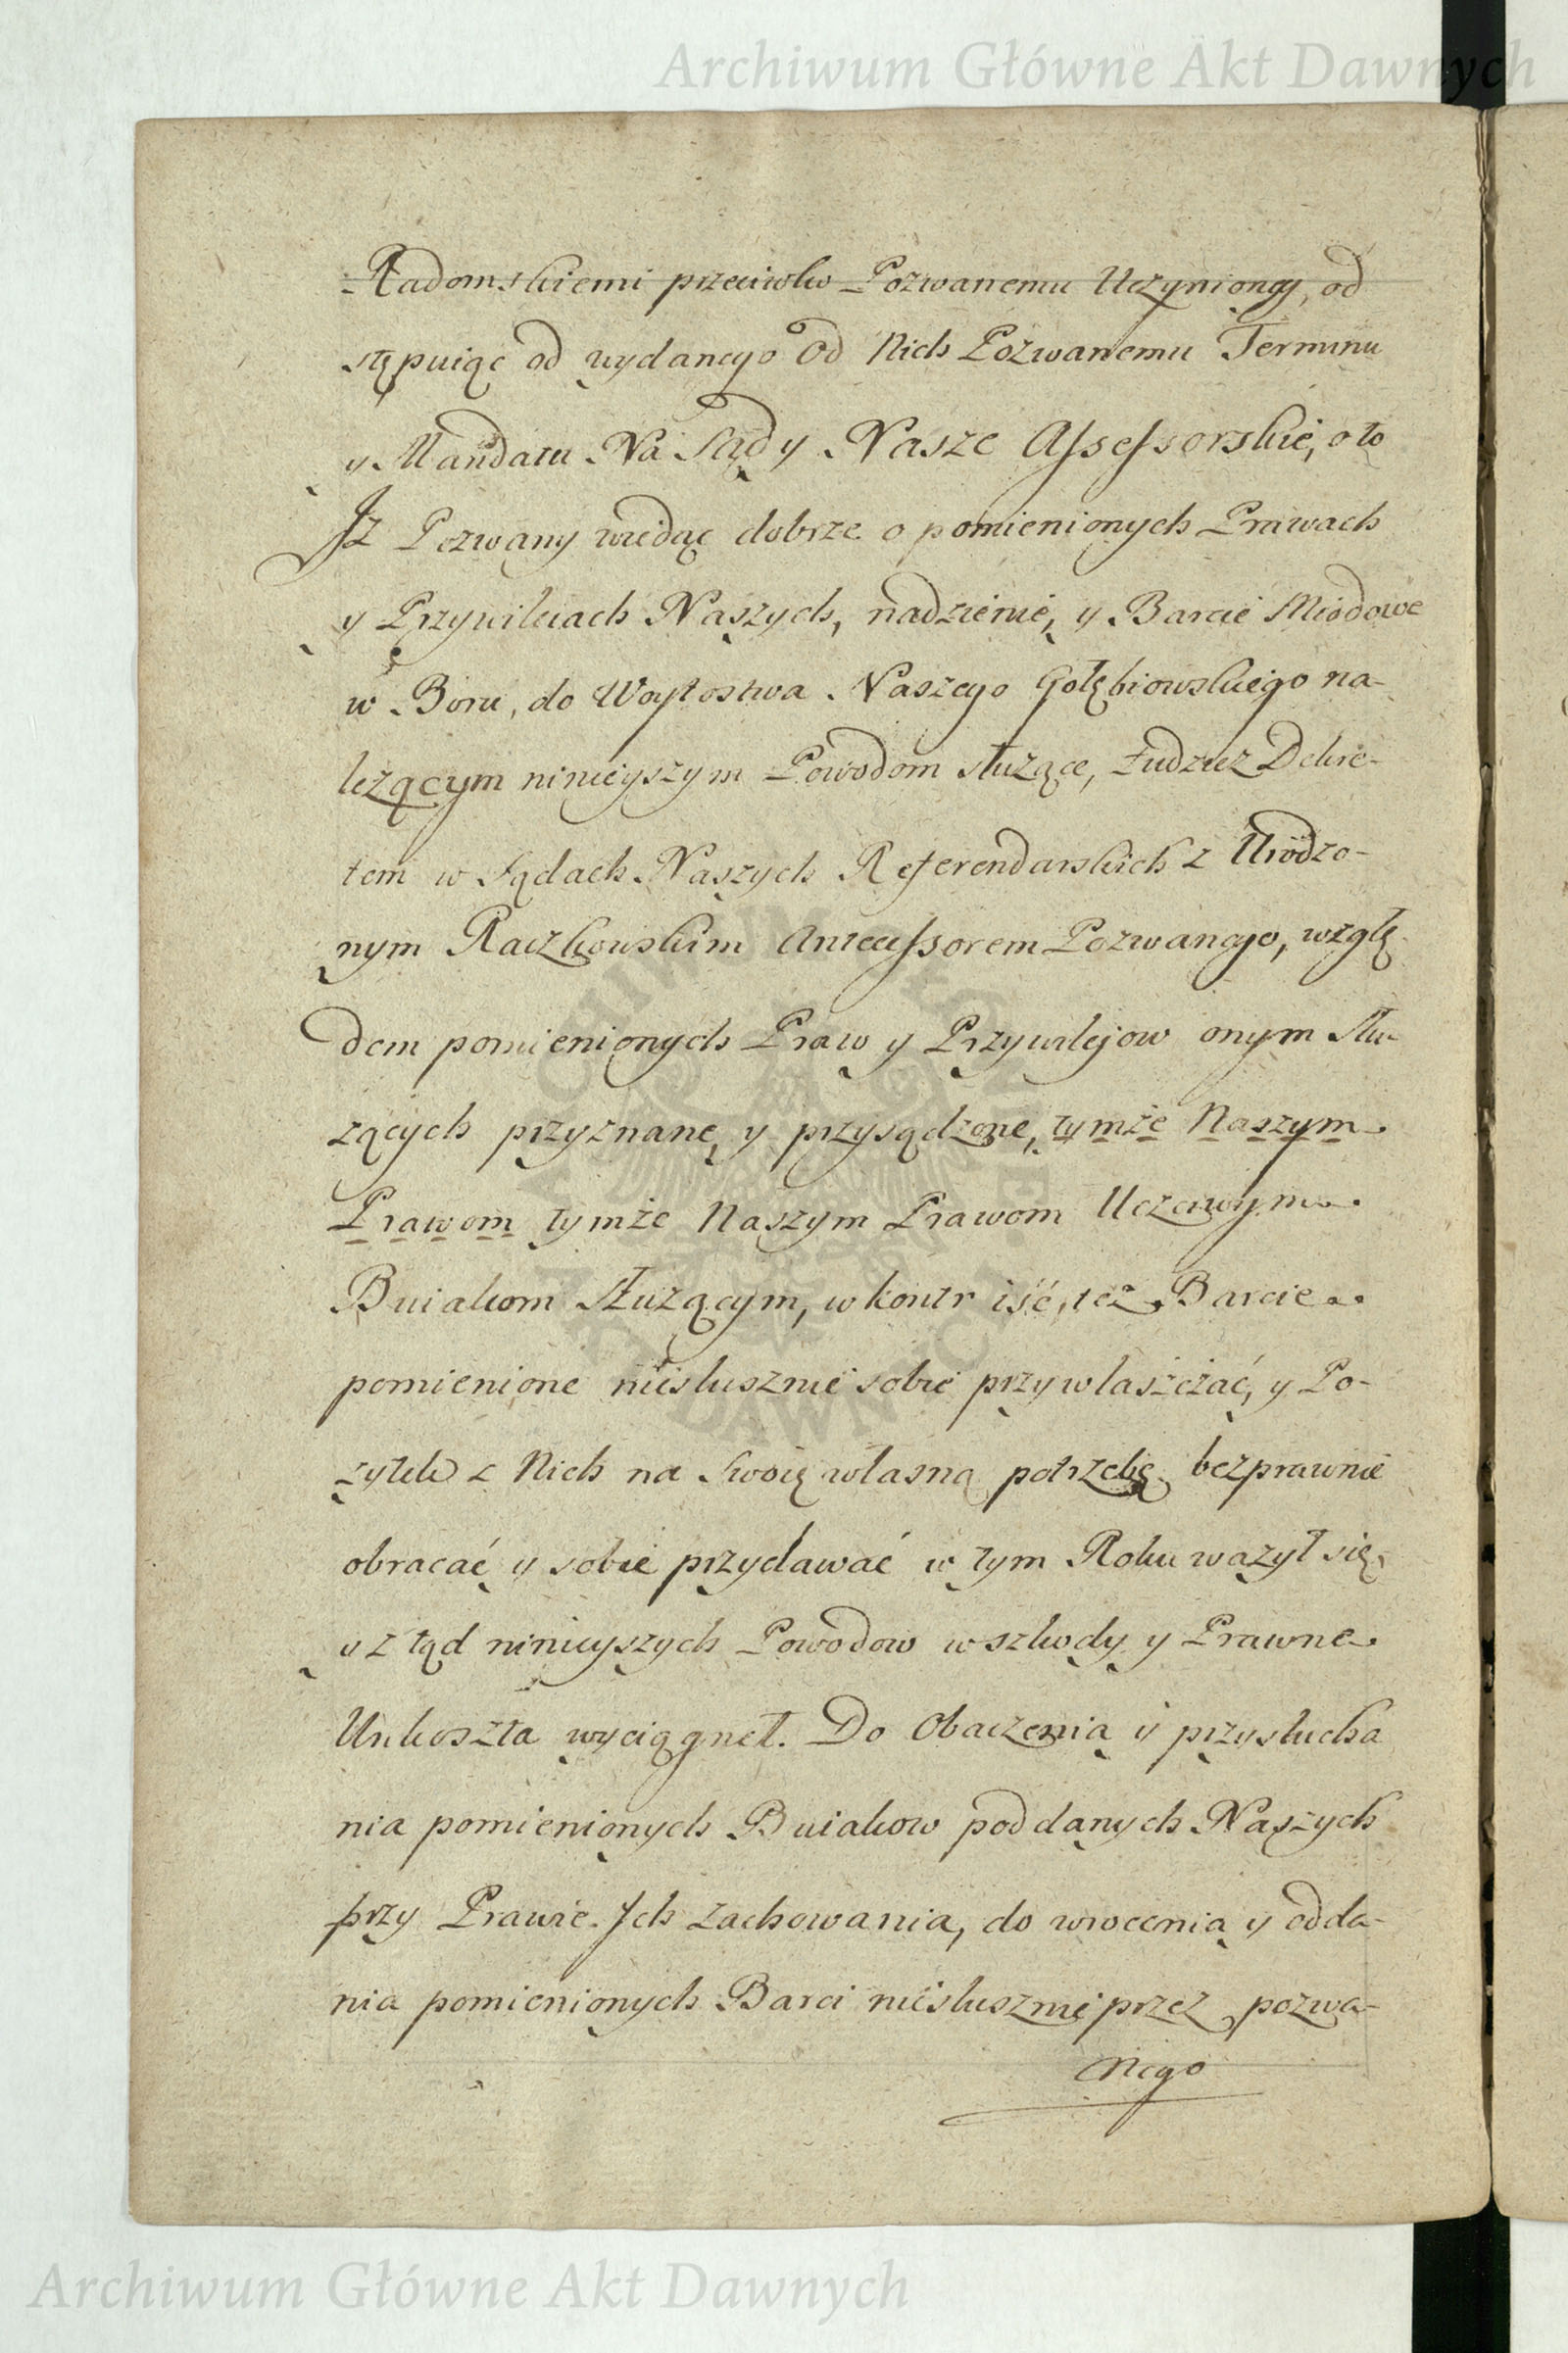 Archiwum Główne Akt Dawnych
Radomskiemi przeciwko Pozwanemu Uczynioney, od
stępuiąc od wydanego od Nich Pozwanemu Terminu
y Mandatu Na Sądy Nasze Assessorskie, o to
Jż Pozwany wiedąc dobrze o pomienionych Prawach
y Przywileiach Naszych, nadzienie, y Barcie Miodowe
w Boru, do Woytostwa Naszego Gołębiowskiego na-
leżącym ninieyszym Powodom służące, tudzież Dekre-
tem w Sądach Naszych Referendarskich z Urodzo-
nym Raczkowskim Antecessorem Pozwanego, wzglę
dem pomienionych Praw y Przywilejow onym słu-
żących przyznane, y przysądzone, tymże Naszym
Prawom tymże Naszym Prawom Uczciwym
Buiakom służącym, w kontr iść, też Barcie
pomienione niesłusznie sobie przywłaszczać, y Po-
żytek z Nich na swoię własną potrzebę bezprawnie
obracać y sobie przydawać w tym Roku ważył się,
y z tąd ninieyszych Powodow w szkody y Prawne
Unkoszta wyciągnęł. Do Obaczenia y przysłucha
nia pomienionych Buiakow poddanych Naszych
przy Prawie Jch zachowania, do wrocenia y odda-
nia pomienionych Barci niesłusznie przez pozwa-
nego
ARCHIWUM GŁÓWNE AKT DAWNYCH
Archiwum Główne Akt Dawnych